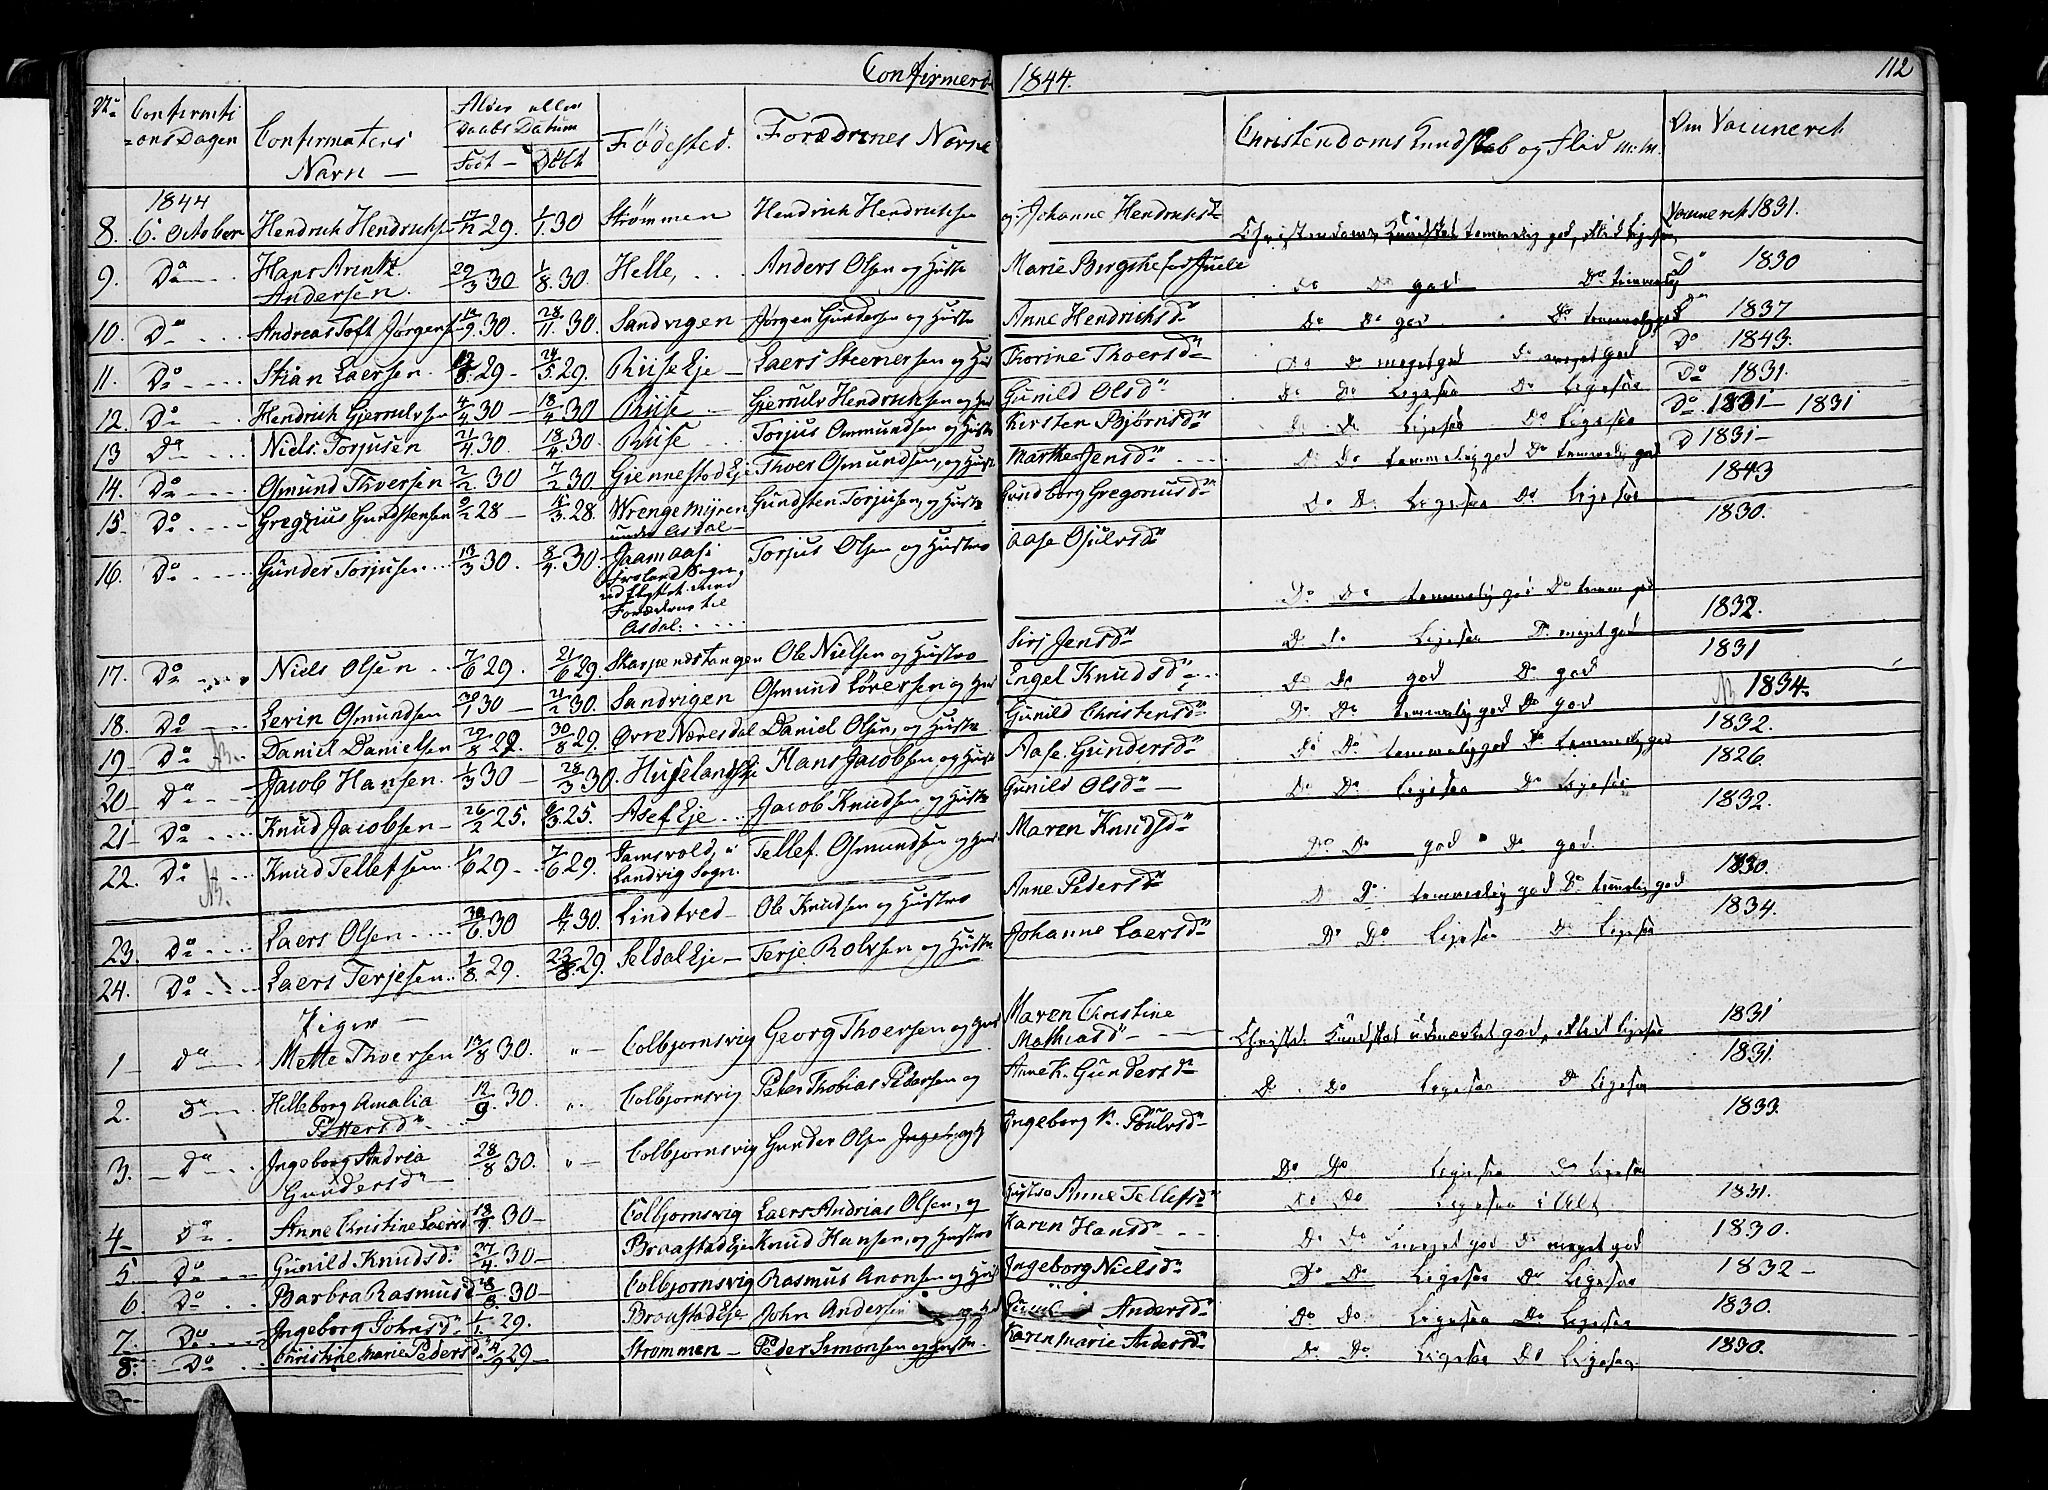 Confirmerde 1844. 112
No Confirmati onsDagen Confirmatens Navn Alder eller Daabs Datum Født Døbt Fødested. Forældrenes Navne Christendoms Kundskab og Flid m.m. Om Vaccineret
1844
8. 6. October Hendrich Hendrichsen 17/12 29. 1/1. 30 Strømmen Hendrich Hendrichsen og Johanne Hendrichsd. Christendoms Kundskab temmelig god, Flid ligesaa, Vaccineret 1831.
9. Do Hans Arentz Andersen 29/3 30 1/8. 30. Helle, Anders Olsen og Hustr Marie Do Do god Do temmelig Do 1830
10. Do Andreas Toft Jørgens 9. 30. 28/11. 30. Sandvigen Jørgen Gundersen og Hustr Anne Hendrichsd Do Do god Do temmelig god Do 1837
11. Do Stian Laersen 8. 29 24/5 29. Riise Eje Laers Steenersen og Hust Thorine Thoersd Do Do meget god Do meget god Do 1843.
12. Do Hendrich Gjerrulvsen 4/4 30 18/4 30. Riise Gjerrulv Hendrichsen og Hust Gunild Olsd Do Do Ligesaa Do Ligesaa Do 1831.
13 Do Niels Torjusen 21/4. 30. 18/4 30. Riise Torjus Ommundsen og Hustr Kirsten Bjørnsd Do Do Ligesaa Do Ligesaa Do 1831 - 1831
14. Do Osmund Thversen 2/2 30 7/2 30. Giennestad Eje Thoer Osmundsen, og Hustr Marthe Jensd Do Do temmelig god Do temmelig god D 1831
15 Do Gregrius Gundstensen 9/2 28 3. 28. Wrengemyren under Asdal Gundsten Torjusen, og Hustr Gundborg Gregoriusd Do Do Ligesaa Do Ligesaa 1843
16. Do Gunder Torjusen 13/3 30. 8/4 30. Jaamaasi Froland Sogn, udflyttet med Forældrene til Asdal. Torjus Olsen og Hustro Aase Osulvsd Do Do temmelig god Do temm god 1830.
17. Do Niels Olsen 7/6 29. 21/6 29. Skarpenstangen Ole Nielsen og Hustro Siri Jensd Do Do Ligesaa Do meget god 1832.
18. Do Levin Osmundsen 30/1 30 21/2 30. Sandvigen Osmund Løversen og Hust Engel Knudsd Do Do god Do god 1831
19 Do NB. Daniel Danielsen 29/8 29. 30/8 29. Øvre Næresdal Daniel Olsen, og Hustr Gunild Christensd Do Do temmelig god Do god NB 1834
20 Do Jacob Hansen. 1/3 30 28/3 30. Huselands Eje Hans Jacobsen og Hust Aase. Gundersd Do Do temmelig god Do temmelig god 1832.
21 Do Knud Jacobsen 26/2 25. 6/3. 25. Asef Eje Jacob Knudsen, og Hustr Gunild Olsd Do Do Ligesaa Do Ligesaa 1826
22. Do NB. Knud Tellefsen 1/6 29 7/6 29. Landvig Sogn. Tellef. Osmundsen og Hust Maren Knudsd Do Do god Do god 1832.
23. Do Laers Olsen 30/6 30 11/7. 30. Lindtved Ole Knudsen og Hustro Anne Pedersd Do Do temmelig god Do temmelig god 1830.
24. Do Laers Terjesen 1/8. 29. 23/8. 29. Seldal Eje Terje Rolvsen og Hustr Johanne Laersd Do Do Ligesaa Do Ligesaa 1834.
Piger
1 Do Mette Thoersen 13/8 30. " Colbjornsvig Georg Thoersen og Hust Maren Christine Mathiasd Christd. Kundskab udmærket god, Flid ligesaa 1831
2. Do Helleborg Amalia Pettersd 12/9. 30. " Colbjornsvig Peter Thobias Pedersen og Anne K. Gundersd Do Do Ligesaa Do Ligesaa 1831.
3. Do Ingeborg Andrea Gundersd 28/8 30. " Colbjornsvig Gunder Olsen Ingeborg Ingeborg K. Poulsd Do Do Ligesaa Do Ligesaa 1833.
4 Do Anne Christine Laersd 18/9. 30 Colbjornsvig Laers Andrias Olsen, og Hustro Anne Tellefsd Do Do Ligesaa i Alt 1831.
5 Do Gunild Knudsd. 27/4 30 Braastad Eje Knud Hansen, og Hustro Karen Hansd Do Do meget god Do meget god 1830.
6. Do Barbra Rasmusd 28/8. 30 Colbjornsvig Rasmus Aronsen og Hust Ingeborg Nielsd Do Do Ligesaa Do Ligesaa 1832
7. Do Ingeborg Johnsd 1/1. 29. Braastad Eje John Andersen og Andersd Do Do Ligesaa Do Ligesaa 1830.
8. Do Christine Marie Pedersd 4/9 29 Strømmen Peder Simonsen og Hustr. Karen Marie Andersd Do Do Ligesaa Do Ligesaa 1830.